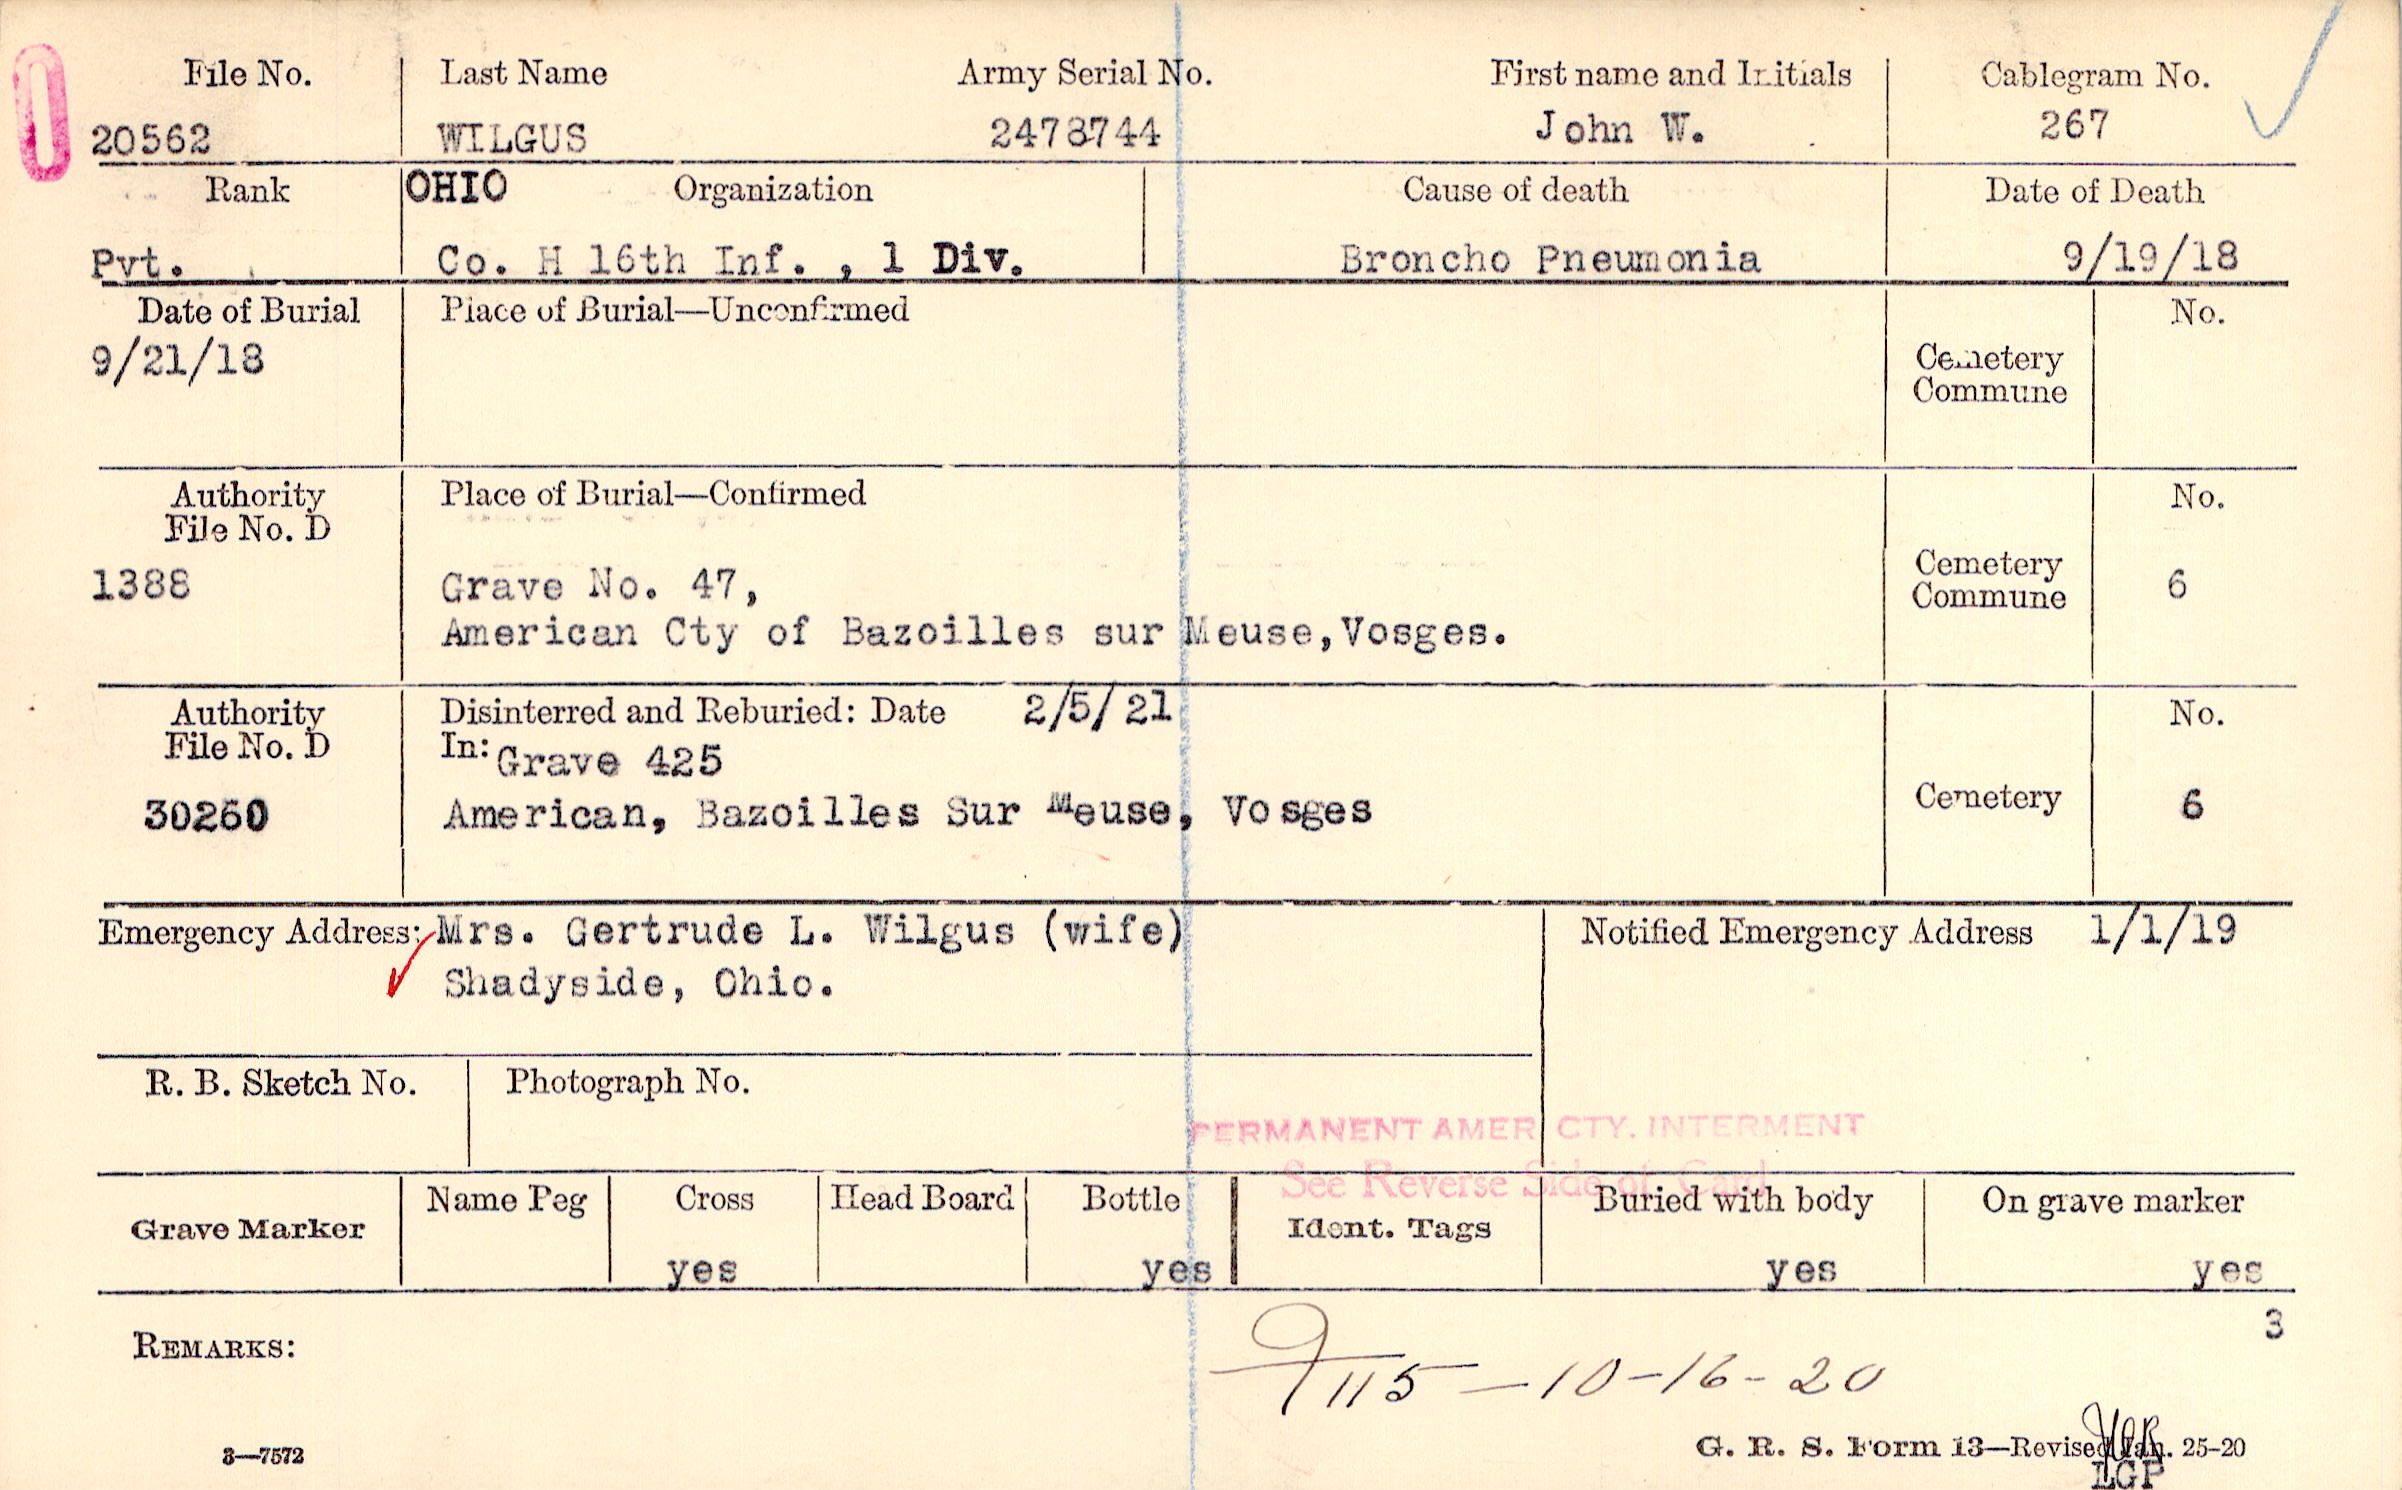 File No. Last Name Army Serial No. First name and Initials Cablegram No.
20562 WILGUS 2478744 John W. 267
Rank OHIO Organization Cause of death Date of Death
Pvt. Co. H 16th Inf. , 1 Div. Broncho Pneumonia 9/19/18
Date of Burial Place of Burial—Unconfirmed No.
9/21/18
Cemetery
Commune
Authority Place of Burial—Confirmed No.
File No. D
1388 Grave No. 47, Cemetery 6
Commune
American Cty of Bazoilles sur Meuse,Vosges.
Authority Disinterred and Reburied: Date 2/5/21 No.
File No. D In: Grave 425
30260 American, Bazoilles Sur Meuse, Vosges Cemetery 6
Emergency Address: Mrs. Gertrude L. Wilgus (wife) Notified Emergency Address 1/1/19
Shadyside, Ohio.
R. B. Sketch No. Photograph No.
PERMANENT AMER CTY. INTERMENT
See Reverse Side of Card
Grave Marker Name Peg Cross Head Board Bottle Ident. Tags Buried with body On grave marker
yes yes yes yes
3
REMARKS:
115 — 10-16-20
3—7572 G. R. S. Form 13—Revised Jan. 25-20
LGP